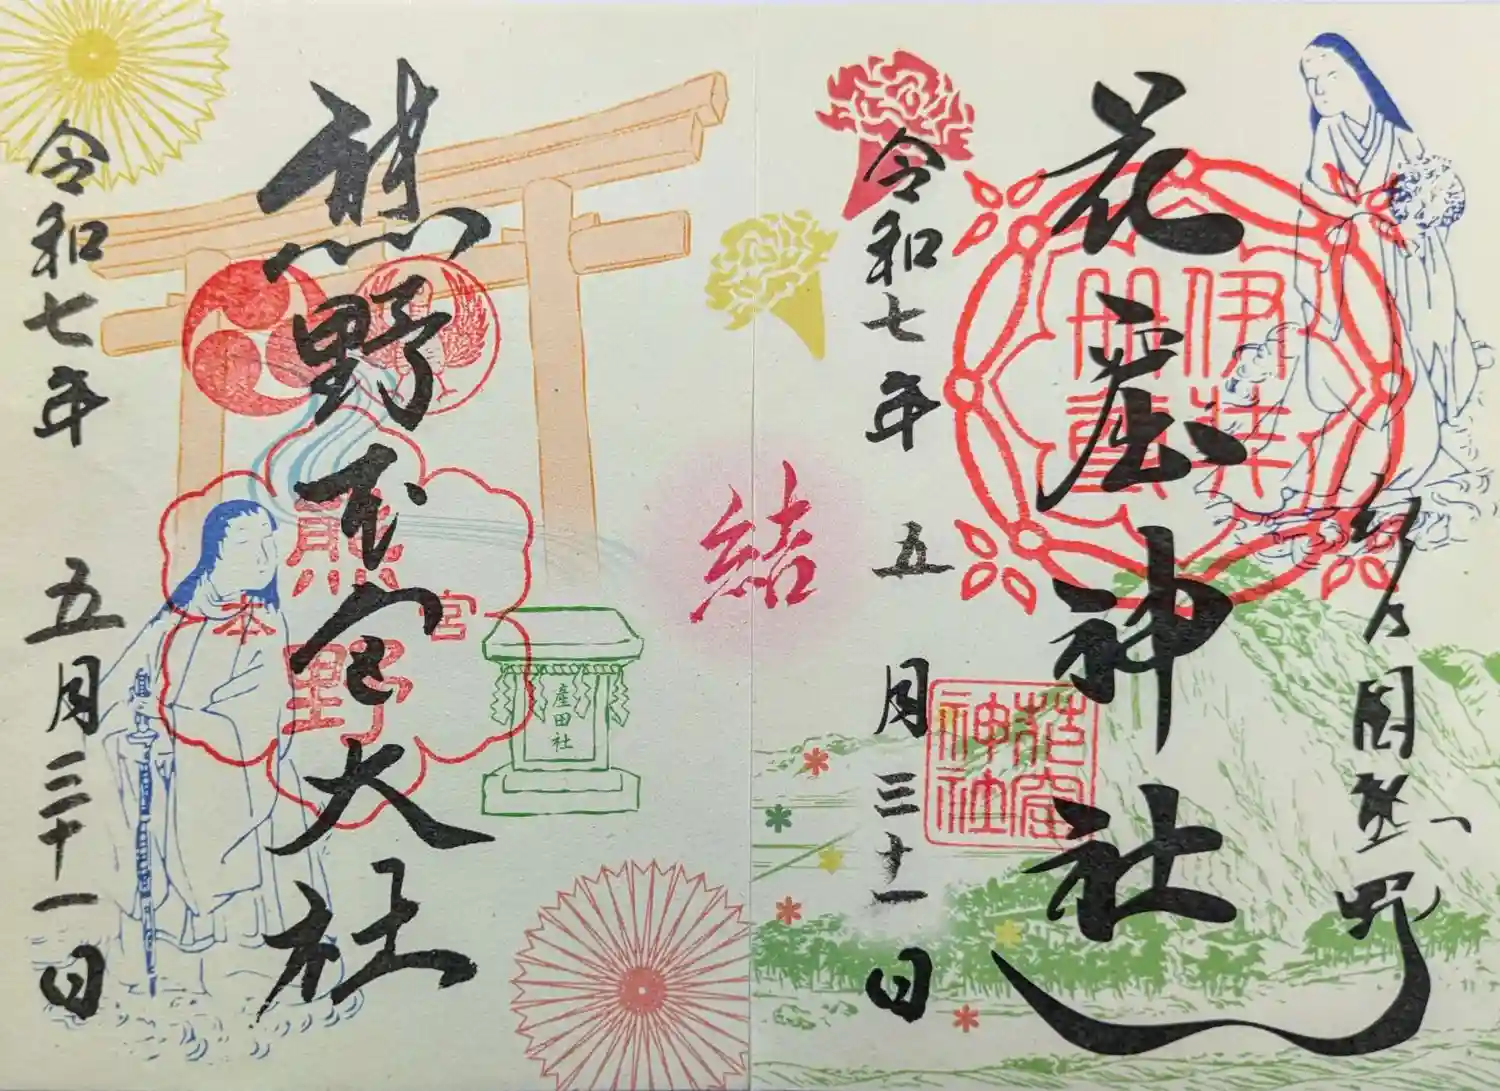 紀乃国熊野
花窟神社
伊弉
冊尊
花窟
神社
令和七年 五月三十一日
結
産田社
熊野本宮大社
熊野
本宮
令和七年 五月三十一日